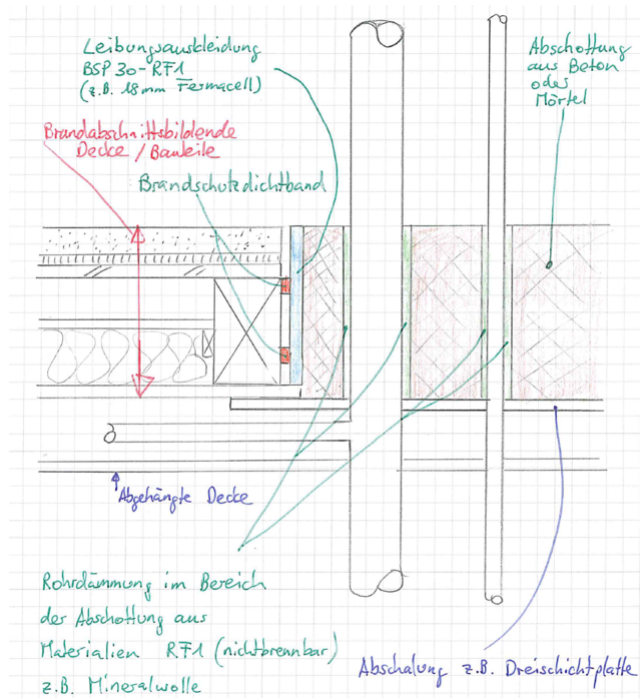 Leibungsauskleidung
BSP 30-RF1
(z.B. 18mm Fermacell)
Abschottung
aus Beton
oder
Mörtel
Brandabschnittsbildende
Decke / Bauteile
Brandschutzdichtband
Abgehängte Decke
Rohrdämmung im Bereich
der Abschottung aus
Materialien RF1 (nichtbrennbar)
z.B. Mineralwolle
Abschalung z.B. Dreischichtplatte